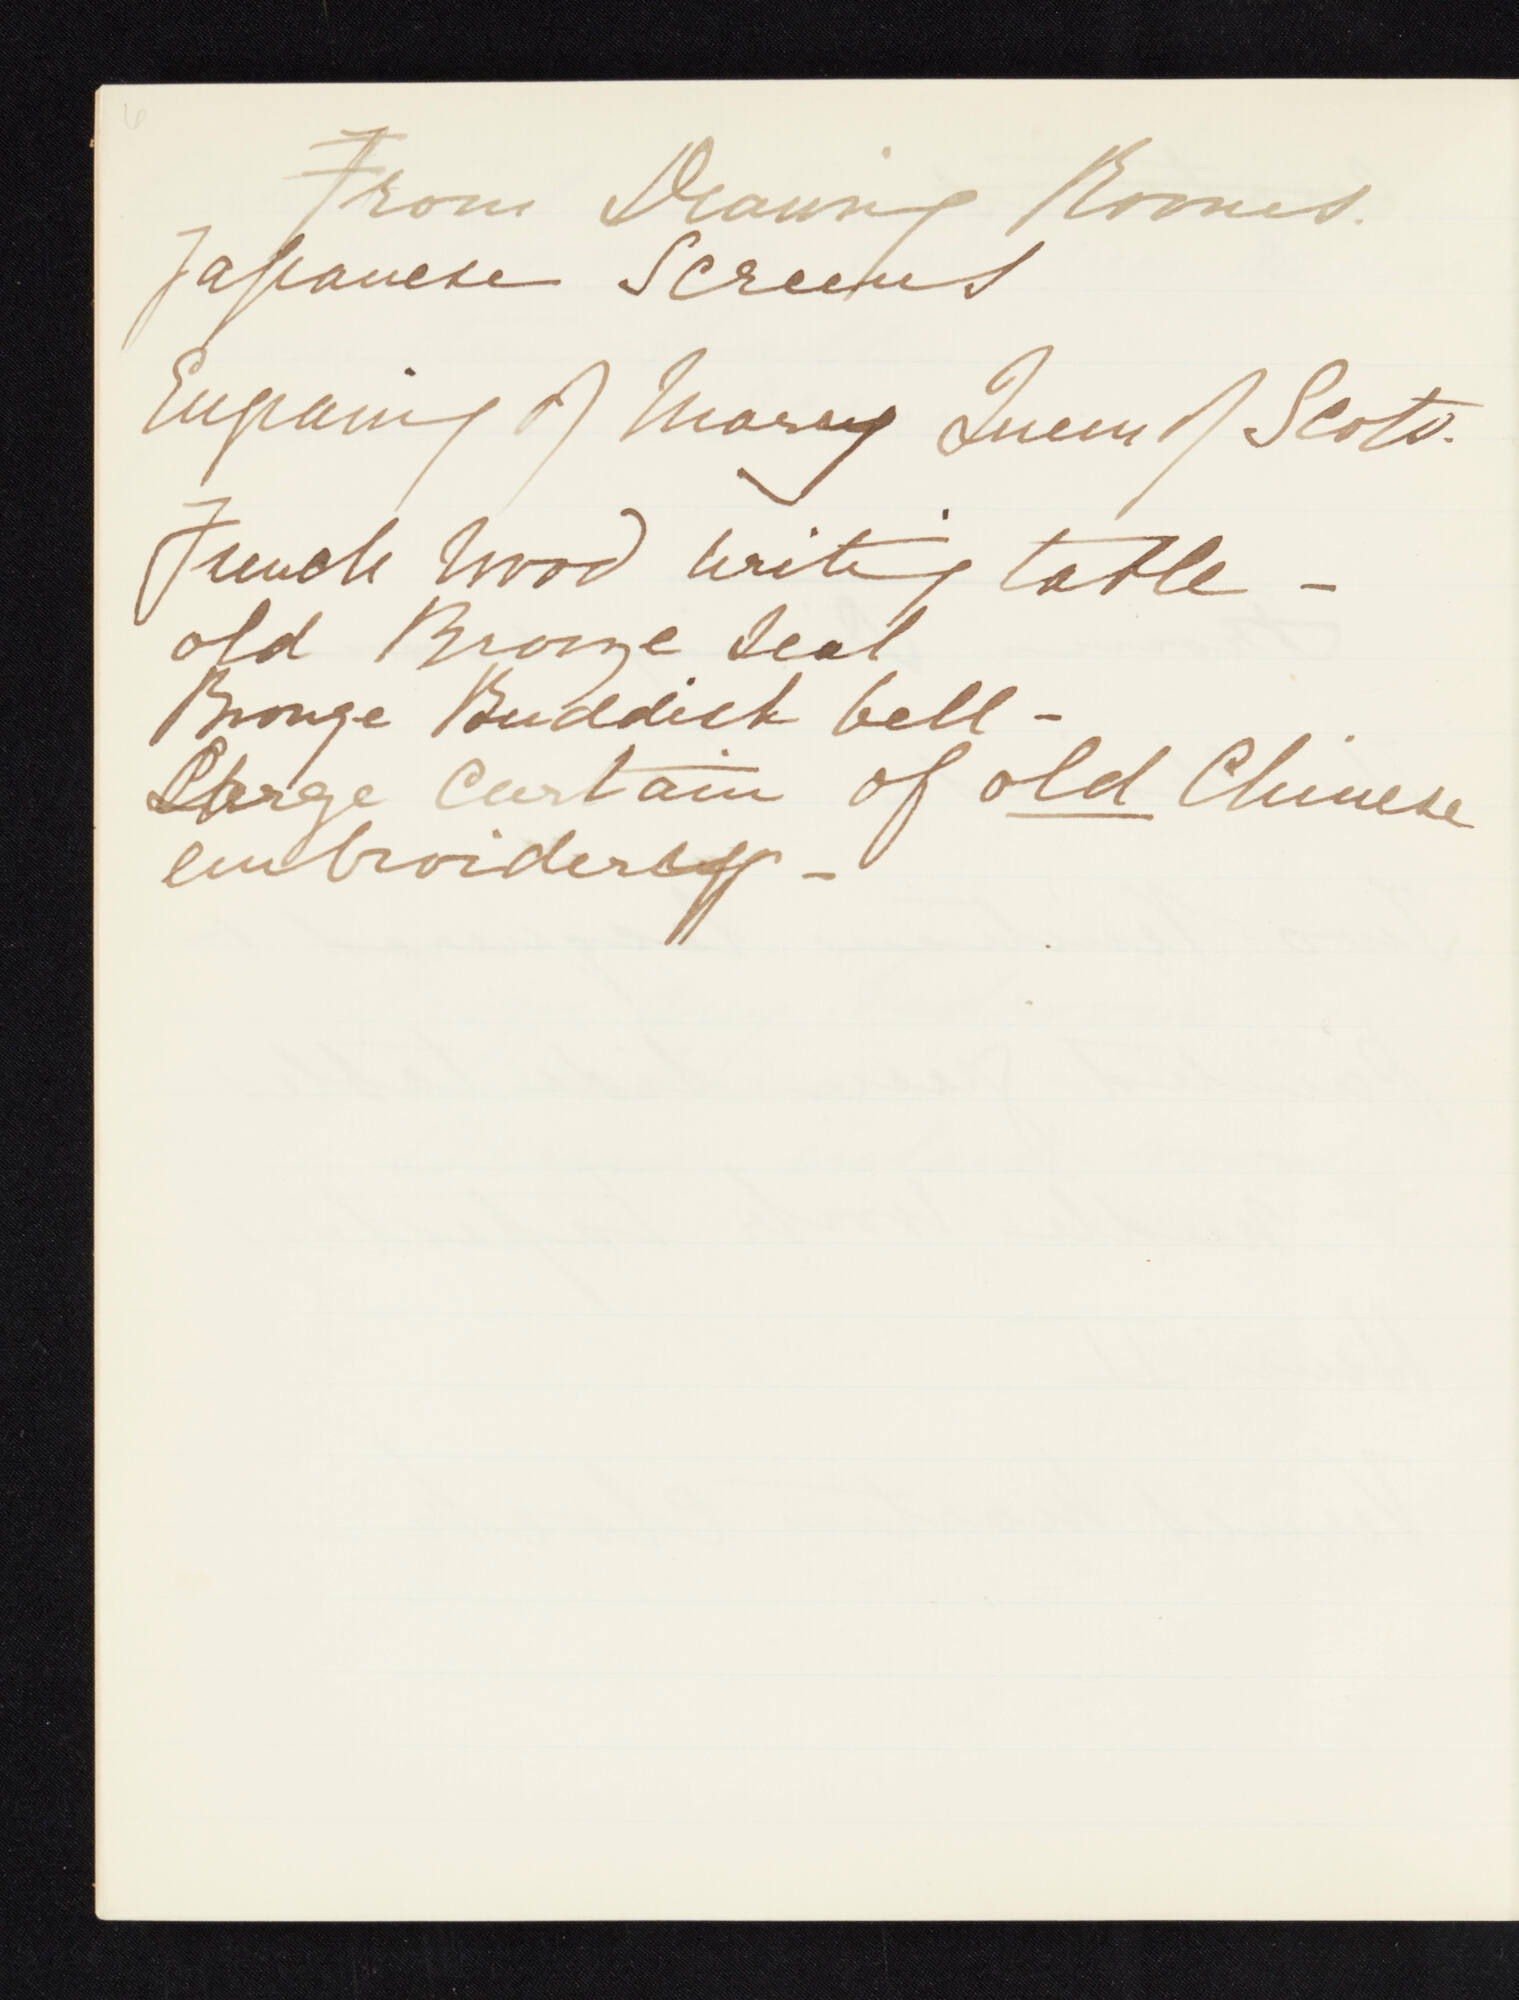 6
From Drawing Rooms.
Japanese Screens
Engraving of Mary Queen of Scots.
French Wood writing table -
old Bronze Seal
Bronze Buddist bell -
Large Curtain of old Chinese
embroidery -